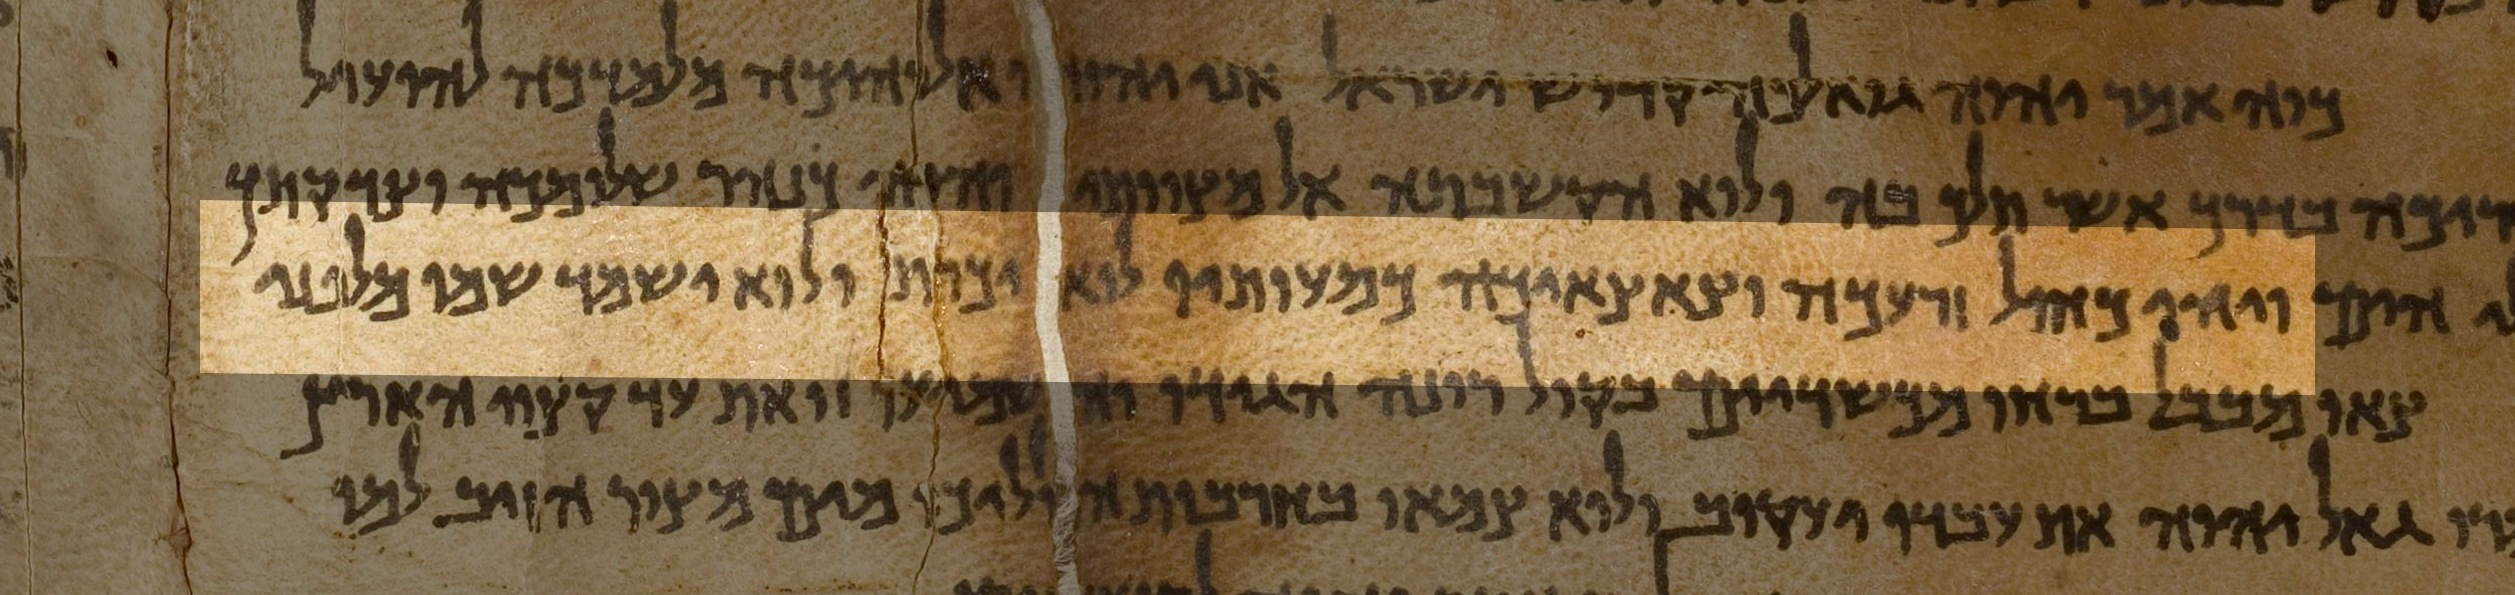 כוה אמר יהוה גואלכה קדוש ישראל אני יהוה אלוהיכה מלמדכה להועיל
בדרך אשר תלך בה ולוא הקשבתה אל מצוותי והיה כנהר שלומכה וצדקתך
הים ויהי כחול זרעכה וצאצאיכה כמעותיו לוא יכרת ולוא ישמד שמו מלפני
צאו מבבל ברחו מכשדיים בקול רונה הגידו והשמיעו זואת עד קצוי הארץ
גאל יהוה את עבדו יעקוב ולוא צמאו בחרבות הוליכו מים מצור הזיב למו